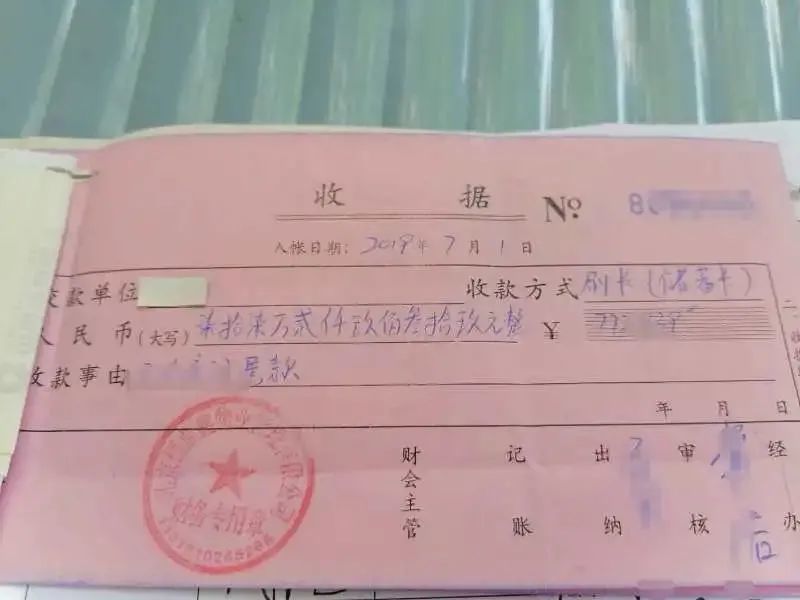 收 据 № 8
入帐日期: 2019年 7月 1日
交款单位 收款方式 刷卡(储蓄卡)
人民币(大写) 柒拾柒万贰仟玖佰叁拾玖元整 ¥ 77
收款事由 号款
年 月 日
财会主管 记账 出纳 审核 经办
财务专用章